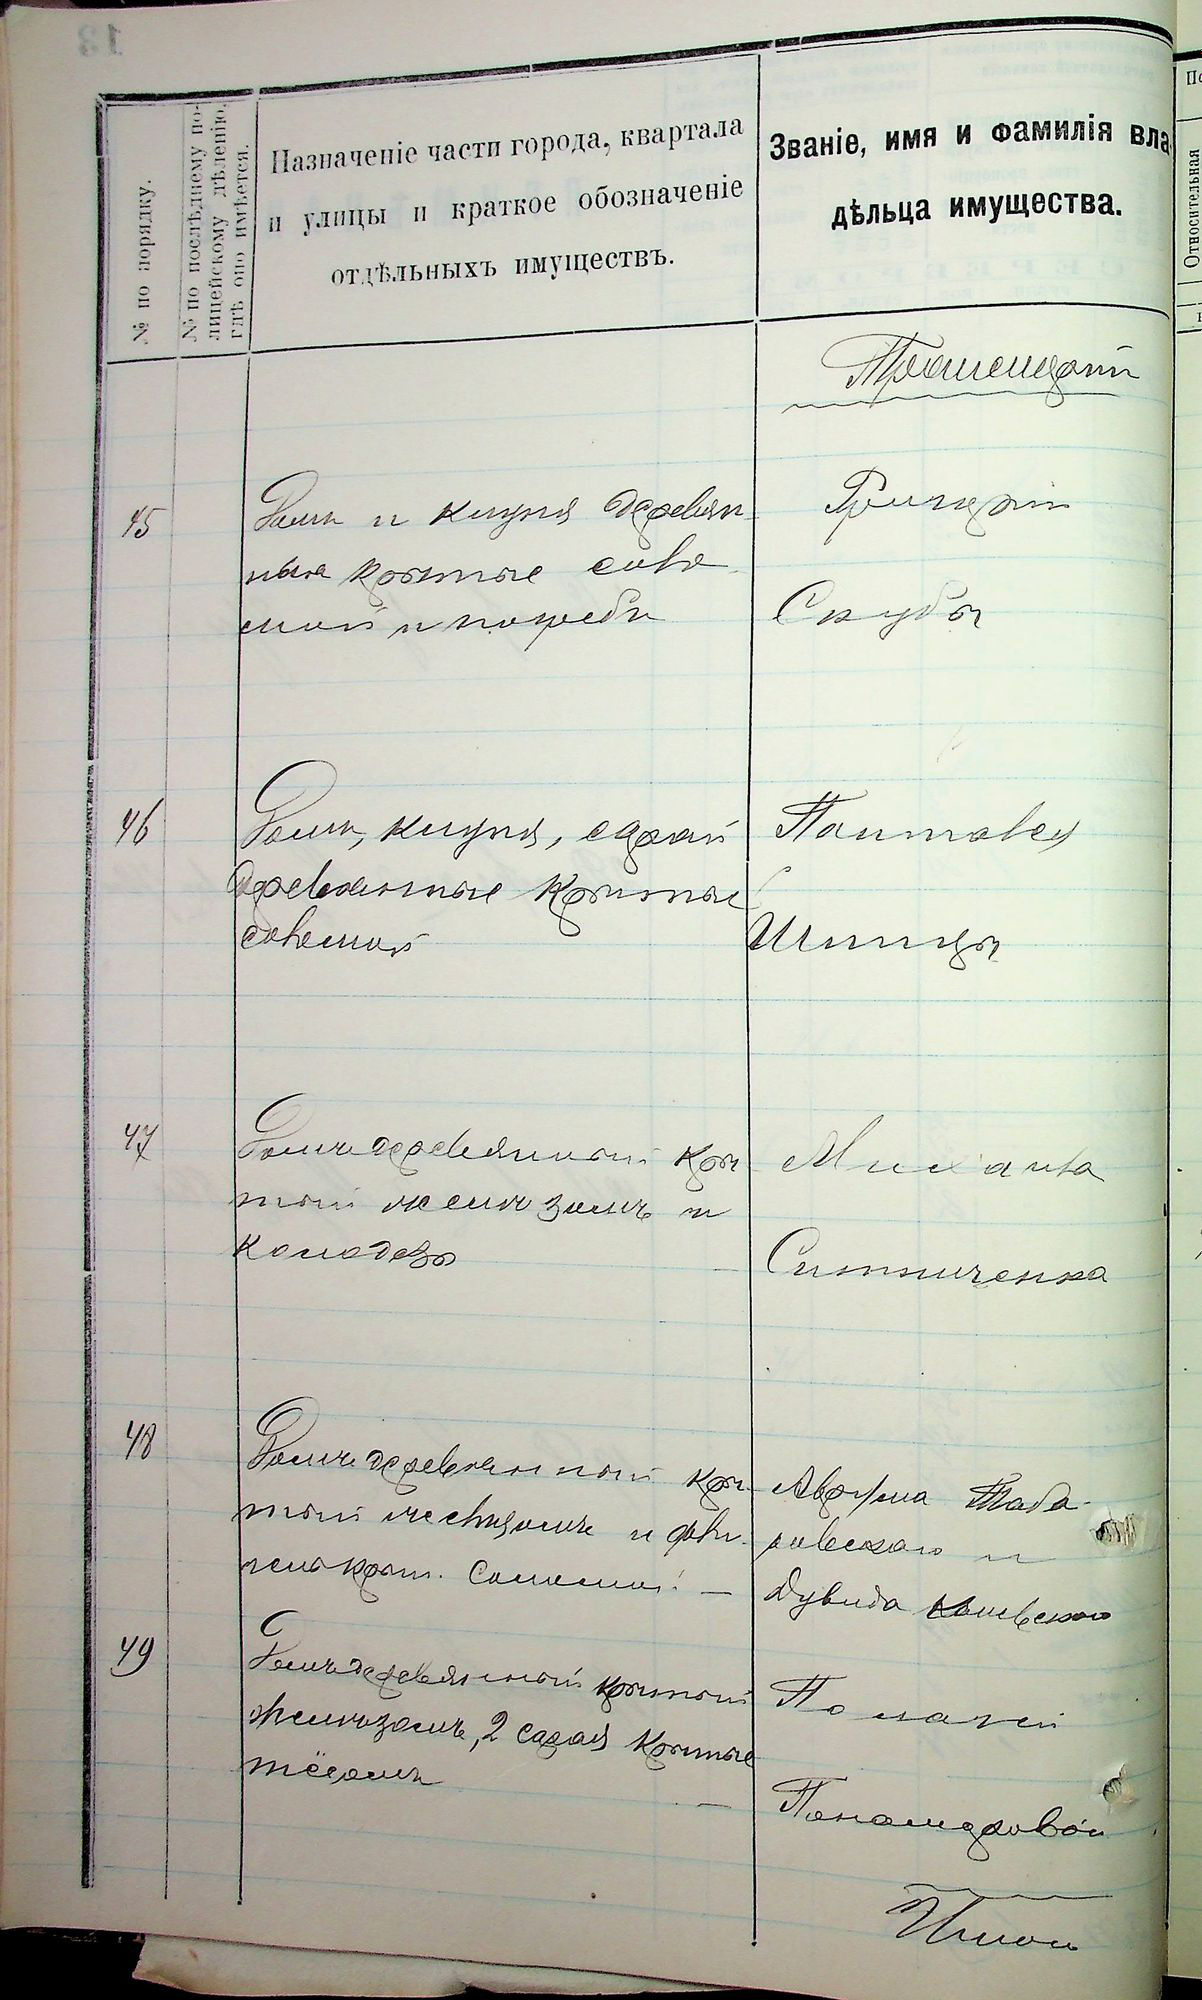 № по порядку.
№ по послѣднему по-
лицейскому дѣленію,
гдѣ оно имѣется.
Назначеніе части города, квартала
и улицы и краткое обозначеніе
отдѣльныхъ имуществъ.
Званіе, имя и фамилія вла-
дѣльца имущества.
Относительная
45
Домъ и клуня деревян
ные крытые соло
мой и погребъ
Григорій
Скубы
46
Домъ, клуня, сарай
деревянные крытые
соломой
Пантовея
Шпицы
47
Домъ деревянный кры
тый желѣзомъ и
колодезь
Михаила
Ситниченка
48
Домъ деревянный кры
тый желѣзомъ и
крыт. соломой. —
Аврума Таба-
ровского и
Дувида
49
Домъ деревянный крытый
желѣзомъ, 2 сарая крытые
тёсомъ —
Пелагеи
Пономаревой
Итого